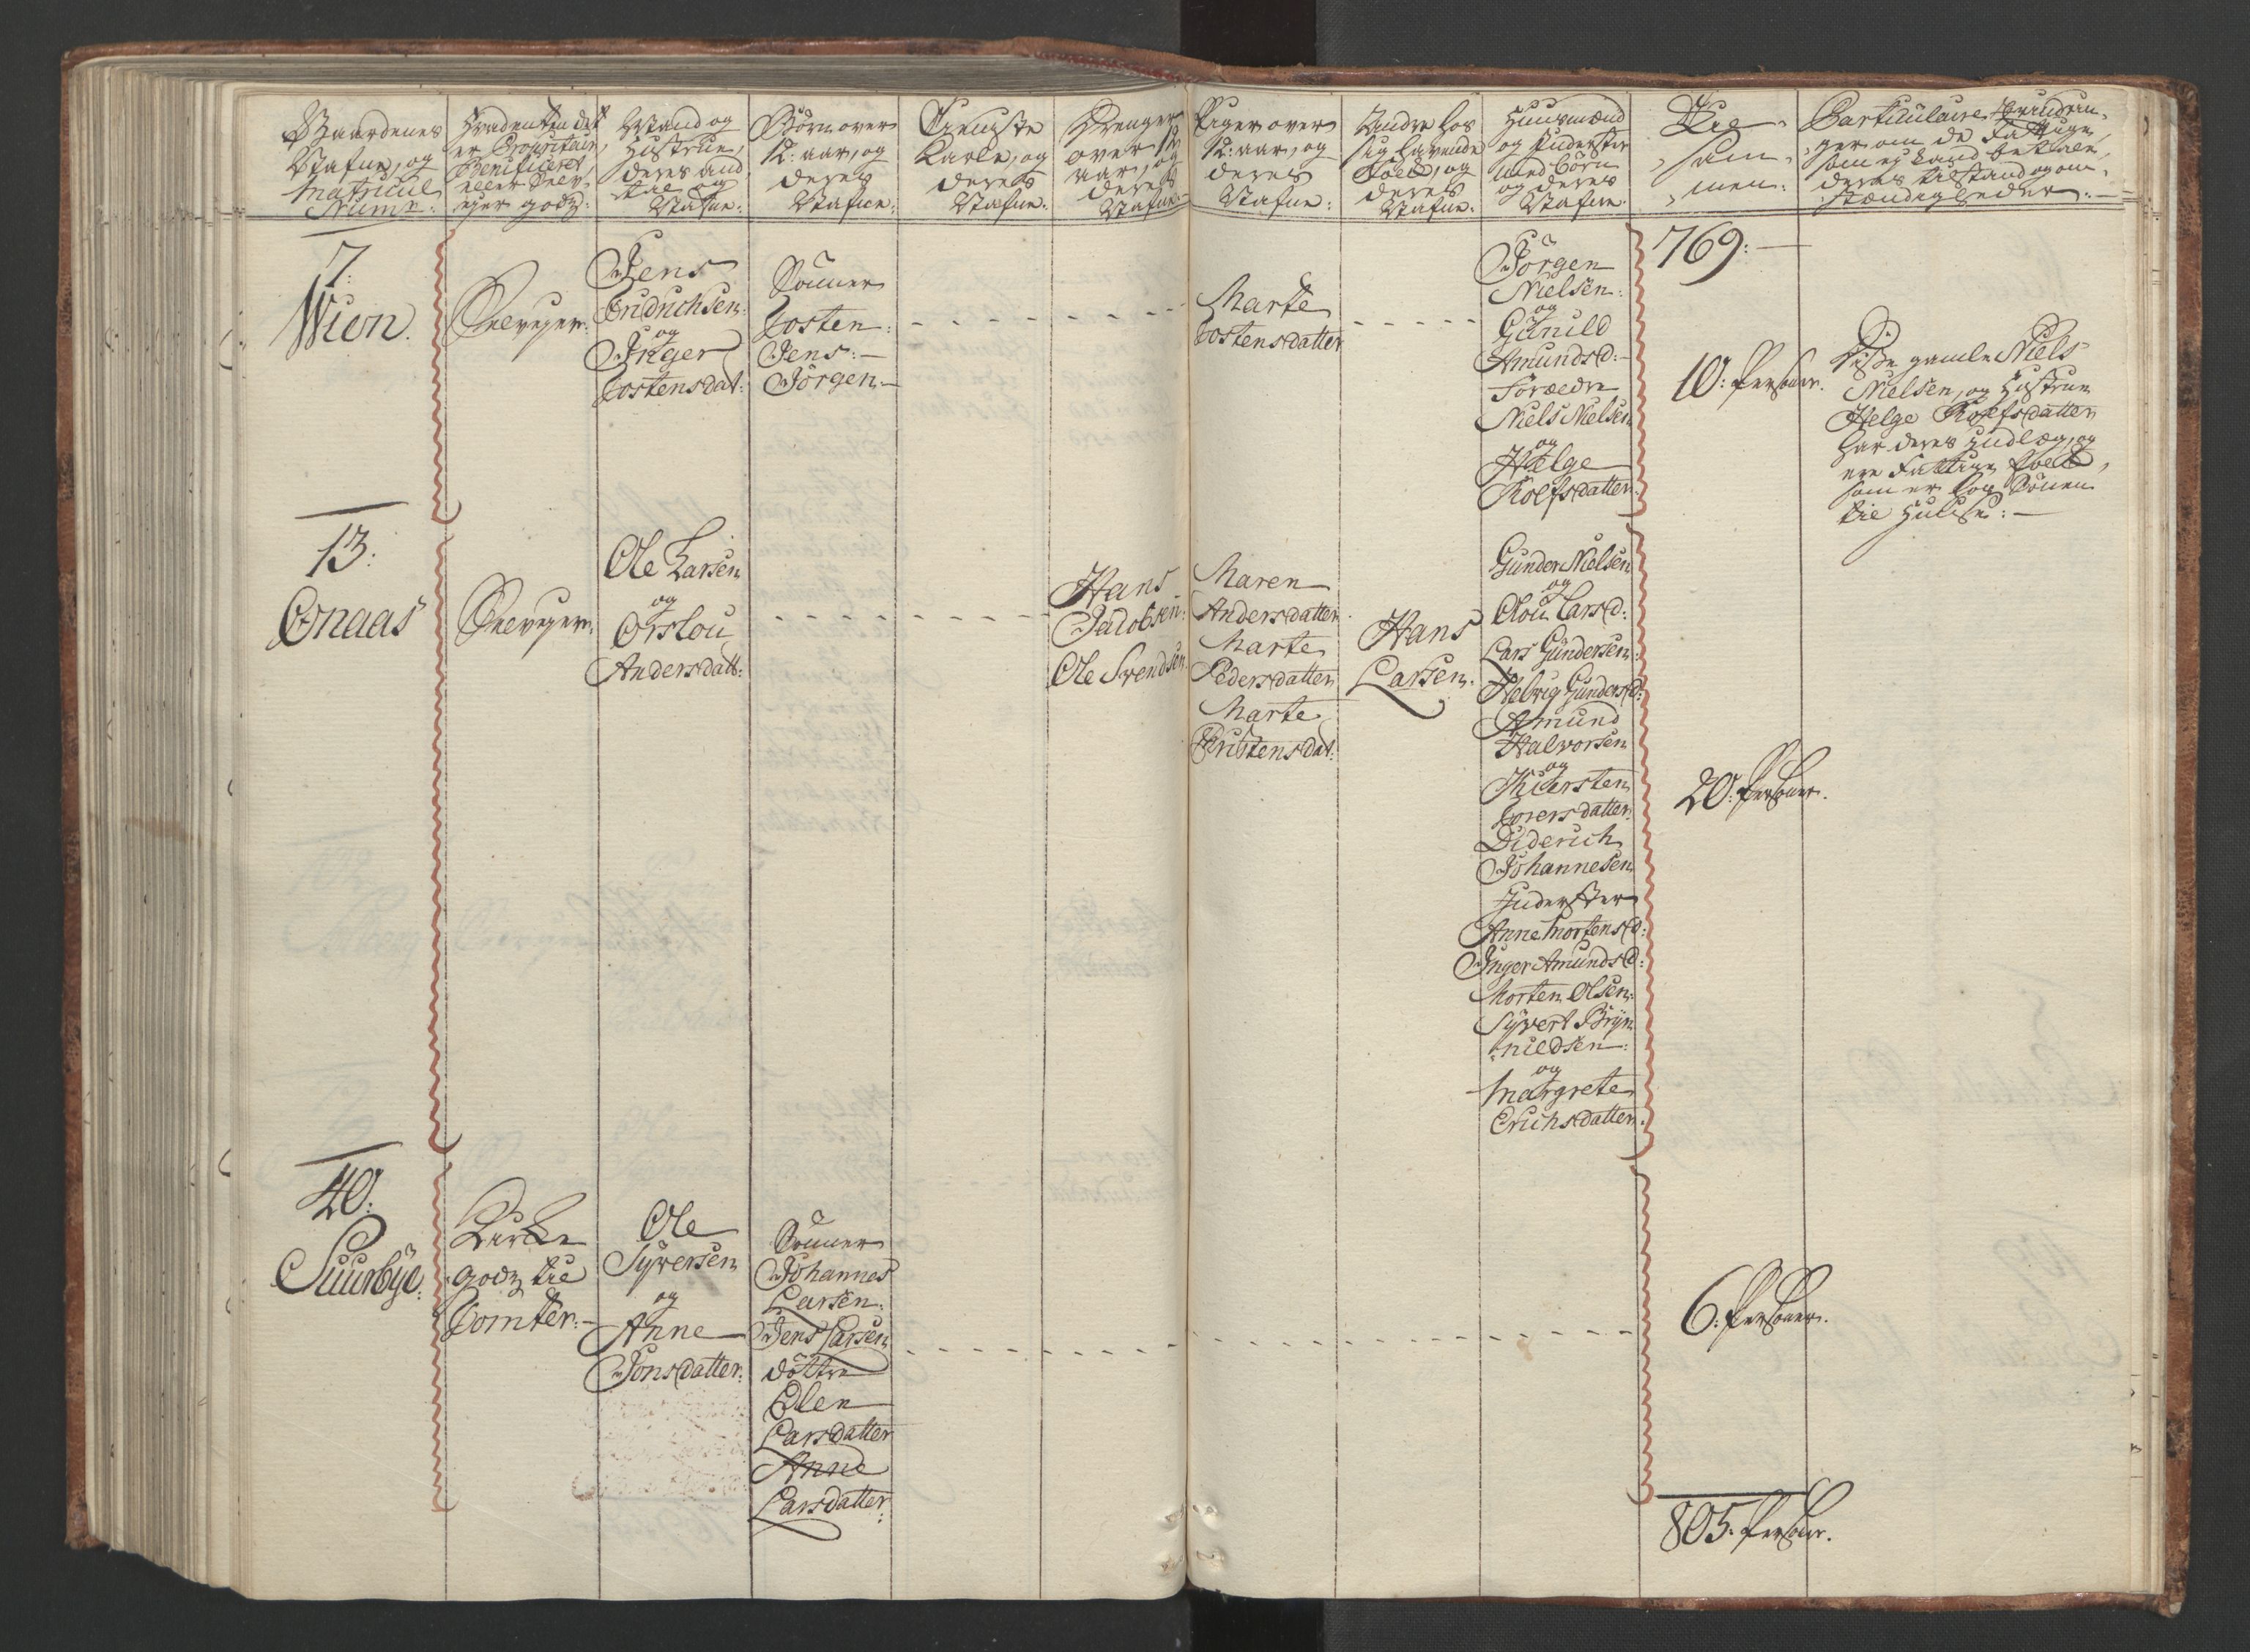 Gaardenes
Nafne, og
Matricul
Numr:
Hvad enten det
er Proprietair,
Beneficeret,
eller Selv-
ejer godz:
Mand og
Hustrue,
deres and
tal og
Nafne:
Børn over
12: aar, og
deres
Nafne:
Tieniste
Karle, og
deres
Nafne:
Drenger
over 12
aar, og
deres
Nafne:
Piger over
12: aar, og
deres
Nafne:
Andre hos
sig havende
Folk, og
deres
Nafne:
Huusmænd
og Inderster
med Børn
og deres
Nafne
Til-
sam-
men:
Particulaire
ger om de Fattige,
som ej kand betale,
deres tilstand og om-
stændigheder:
7:
Wien.
Selvejer:
Jens
Endrichsen:
og
Inger
Tostensdat:
Sønner
Tosten:
Jens:
Jörgen
Marte
Tostensdatter
Jörgen
Nielsen:
og
Gunild
Amundsd:
Forældre
Niels Nielsen
og
Helge
Rolfsdatter
769:
10: Personer.
Disse gamle Niels
Nielsen, og Hustrue
Helge Rolfsdatter
har deres Indlæg, og
ere Fattige Folk,
som er hos Sönen
til Huuse:
13:
Onaas
Selvejer:
Ole Larsen
og
Orslou
Andersdatt:
Hans
Jacobsen:
Ole Svendsen
Maren
Andersdatter
Marte
Pedersdatter
Marte
Christensdat:
Hans
Larsen.
Gunder Nielsen
og
Olou Larsd:
Lars Gundersen:
Helvig Gundersd:
Amund
Halvorsen
og
Kiersten
Torersdatter:
Diderich
Johannesen
Inderster
Anne Mortensd:
Inger Amundsd:
Morten Olsen:
Syvert Bryn
nildsen:
og
Margrete
Erichsdatter.
20: Personer.
40:
Suurbye:
Kirke
godz til
Tomter:
Ole
Syversen
og
Anne
Jonsdatter:
Sönner
Johannes
Larsen:
Jens Larsen
döttre
Elen
Larsdatter
Anne
Larsdatter:
6: Personer.
805: Personer.